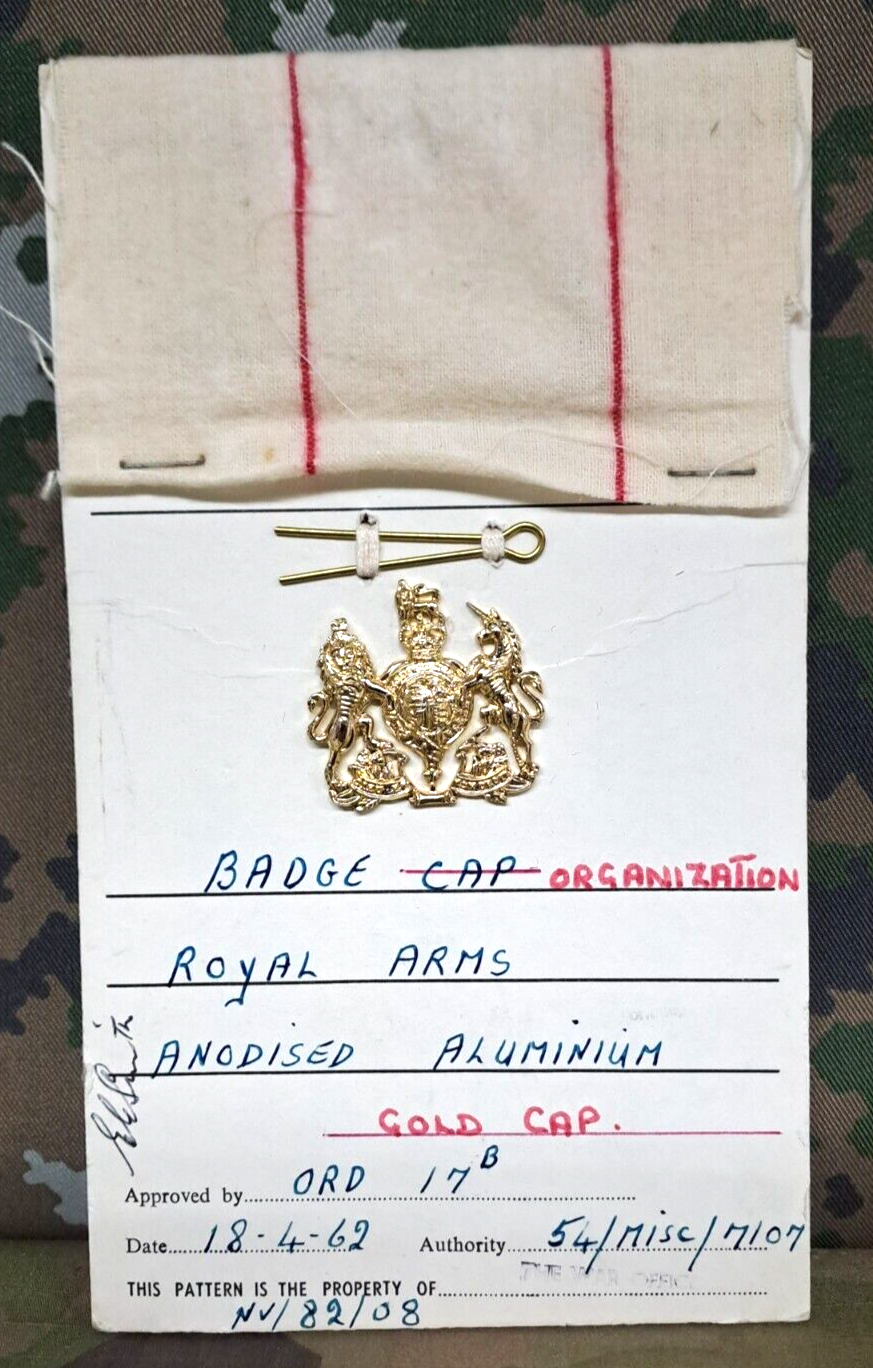 BADGE CAP ORGANIZATION
ROYAL ARMS
ANODISED ALUMINIUM
GOLD CAP.
E E Smith
Approved by ORD 17 B
Date 18-4-62 Authority 54/Misc/7107
THE WAR OFFICE
THIS PATTERN IS THE PROPERTY OF
NV/82/08